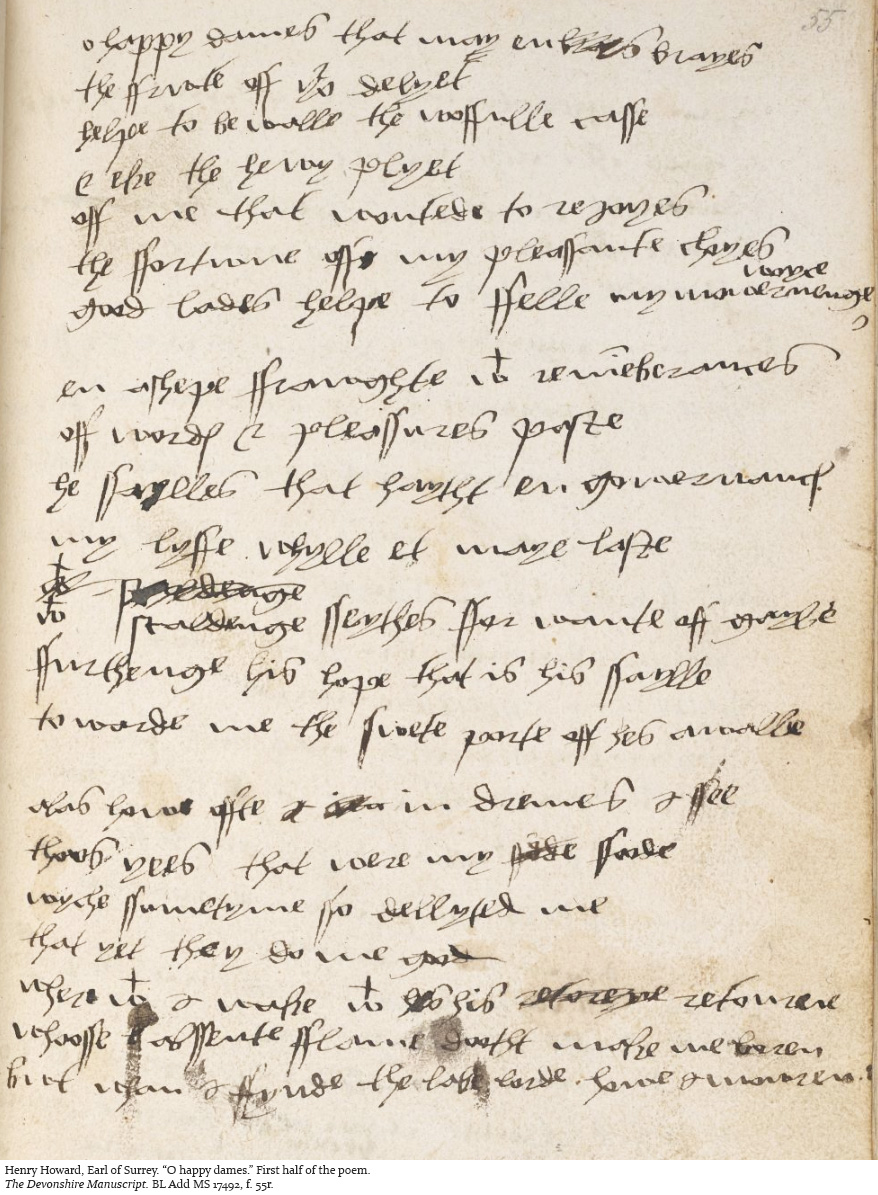 55
o happy dames that may en bras brayes
the ffrute off yor delyet
helpe to bewalle the woffulle casse
& eke the hewy plyet
off me that wontede to reioyes
the ffortune off my pleassante choyes
good lades helpe to ffelle my mornenge
woyce
en a shepe ffrawghte wt remēberances
off words & pleassures paste
he ssaylles that haytht en gowernance
my lyffe whylle et maye laste
wt
wt scaldenge sseythes ffor wante off gayle
ffurthenge his hope that is his ssaylle
towarde me the swete porte off hes awalle
alas howe offte in dremes I ssee
thoos yees that were my ffode
wyche ssumetyme so dellyted me
that yet they do me good
wher wt I wake wt hes his retourne
whoosse abssente fflame dootht make me boren
but whan I ffynde the lake lorde howe I mowren
Henry Howard, Earl of Surrey. “O happy dames.” First half of the poem.
The Devonshire Manuscript. BL Add MS 17492, f. 55r.